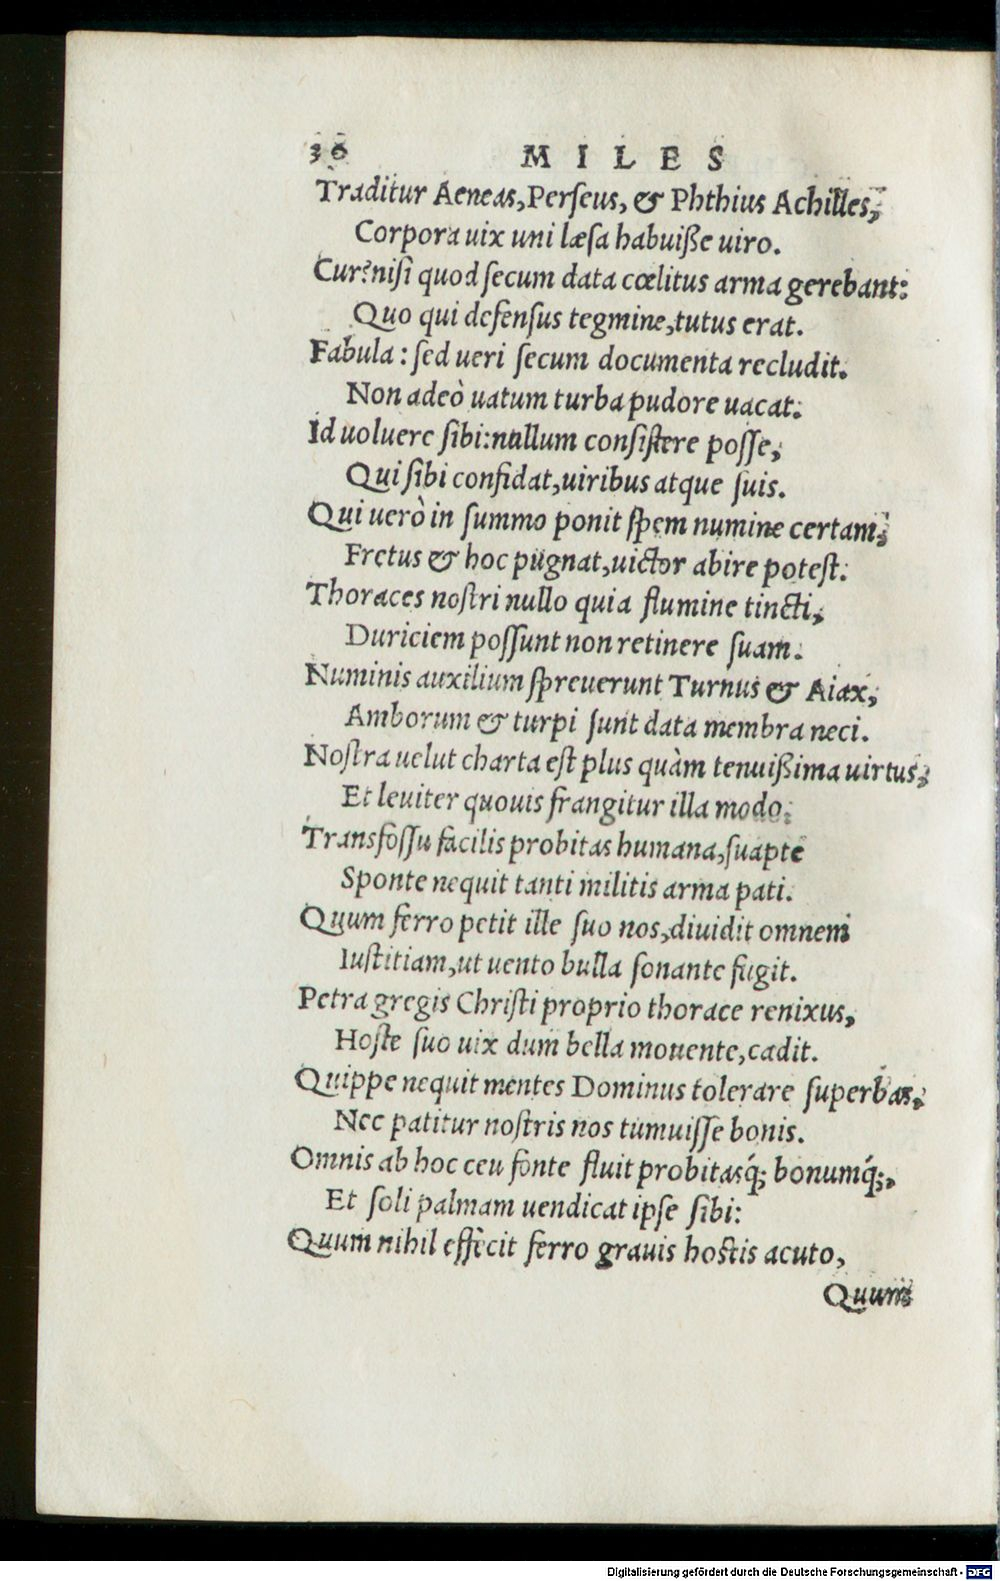 36 MILES
Traditur Aeneas, Perſeus, & Phthius Achilles,
Corpora uix uni læſa habuiße uiro.
Cur? niſi quod ſecum data cœlitus arma gerebant:
Quo qui defenſus tegmine, tutus erat.
Fabula: ſed ueri ſecum documenta recludit.
Non adeò uatum turba pudore uacat.
Id uoluere ſibi: nullum conſiſtere poſſe,
Qui ſibi confidat, uiribus atque ſuis.
Qui uerò in ſummo ponit ſpem numine certam,
Fretus & hoc pugnat, uictor abire poteſt.
Thoraces noſtri nullo quia flumine tincti,
Duriciem poſſunt non retinere ſuam.
Numinis auxilium ſpreuerunt Turnus & Aiax,
Amborum & turpi ſunt data membra neci.
Noſtra uelut charta eſt plus quàm tenuißima uirtus,
Et leuiter quouis frangitur illa modo.
Transfoſſu facilis probitas humana, ſuapte
Sponte nequit tanti militis arma pati.
Quum ferro petit ille ſuo nos, diuidit omnem
Iuſtitiam, ut uento bulla ſonante fugit.
Petra gregis Chriſti proprio thorace renixus,
Hoſte ſuo uix dum bella mouente, cadit.
Quippe nequit mentes Dominus tolerare ſuperbas,
Nec patitur noſtris nos tumuiſſe bonis.
Omnis ab hoc ceu fonte fluit probitasq́; bonumq́;,
Et ſoli palmam uendicat ipſe ſibi:
Quum nihil effecit ferro grauis hoſtis acuto,
Quum
Digitalisierung gefördert durch die Deutsche Forschungsgemeinschaft - DFG